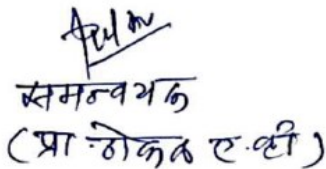 समन्वयक
(प्रा. ठोकळ ए.व्ही)